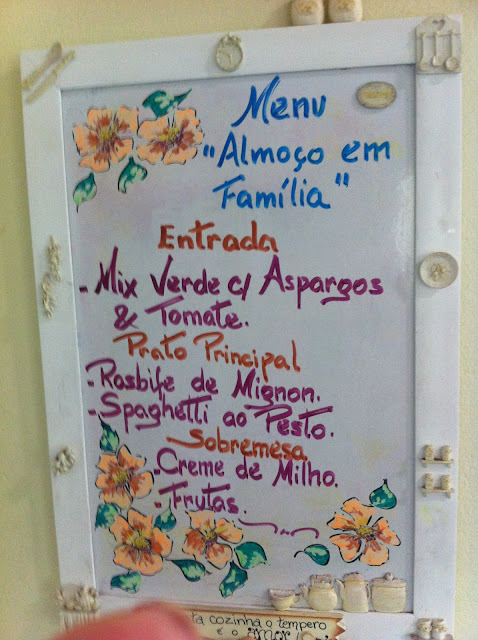 Menu
"Almoço em
Família"
Entrada
- Mix Verde c/ Aspargos
& Tomate.
Prato Principal
- Rosbife de Mignon.
- Spaghetti ao Pesto.
Sobremesa
- Creme de Milho.
- Frutas.
cozinha o tempero
é o amor